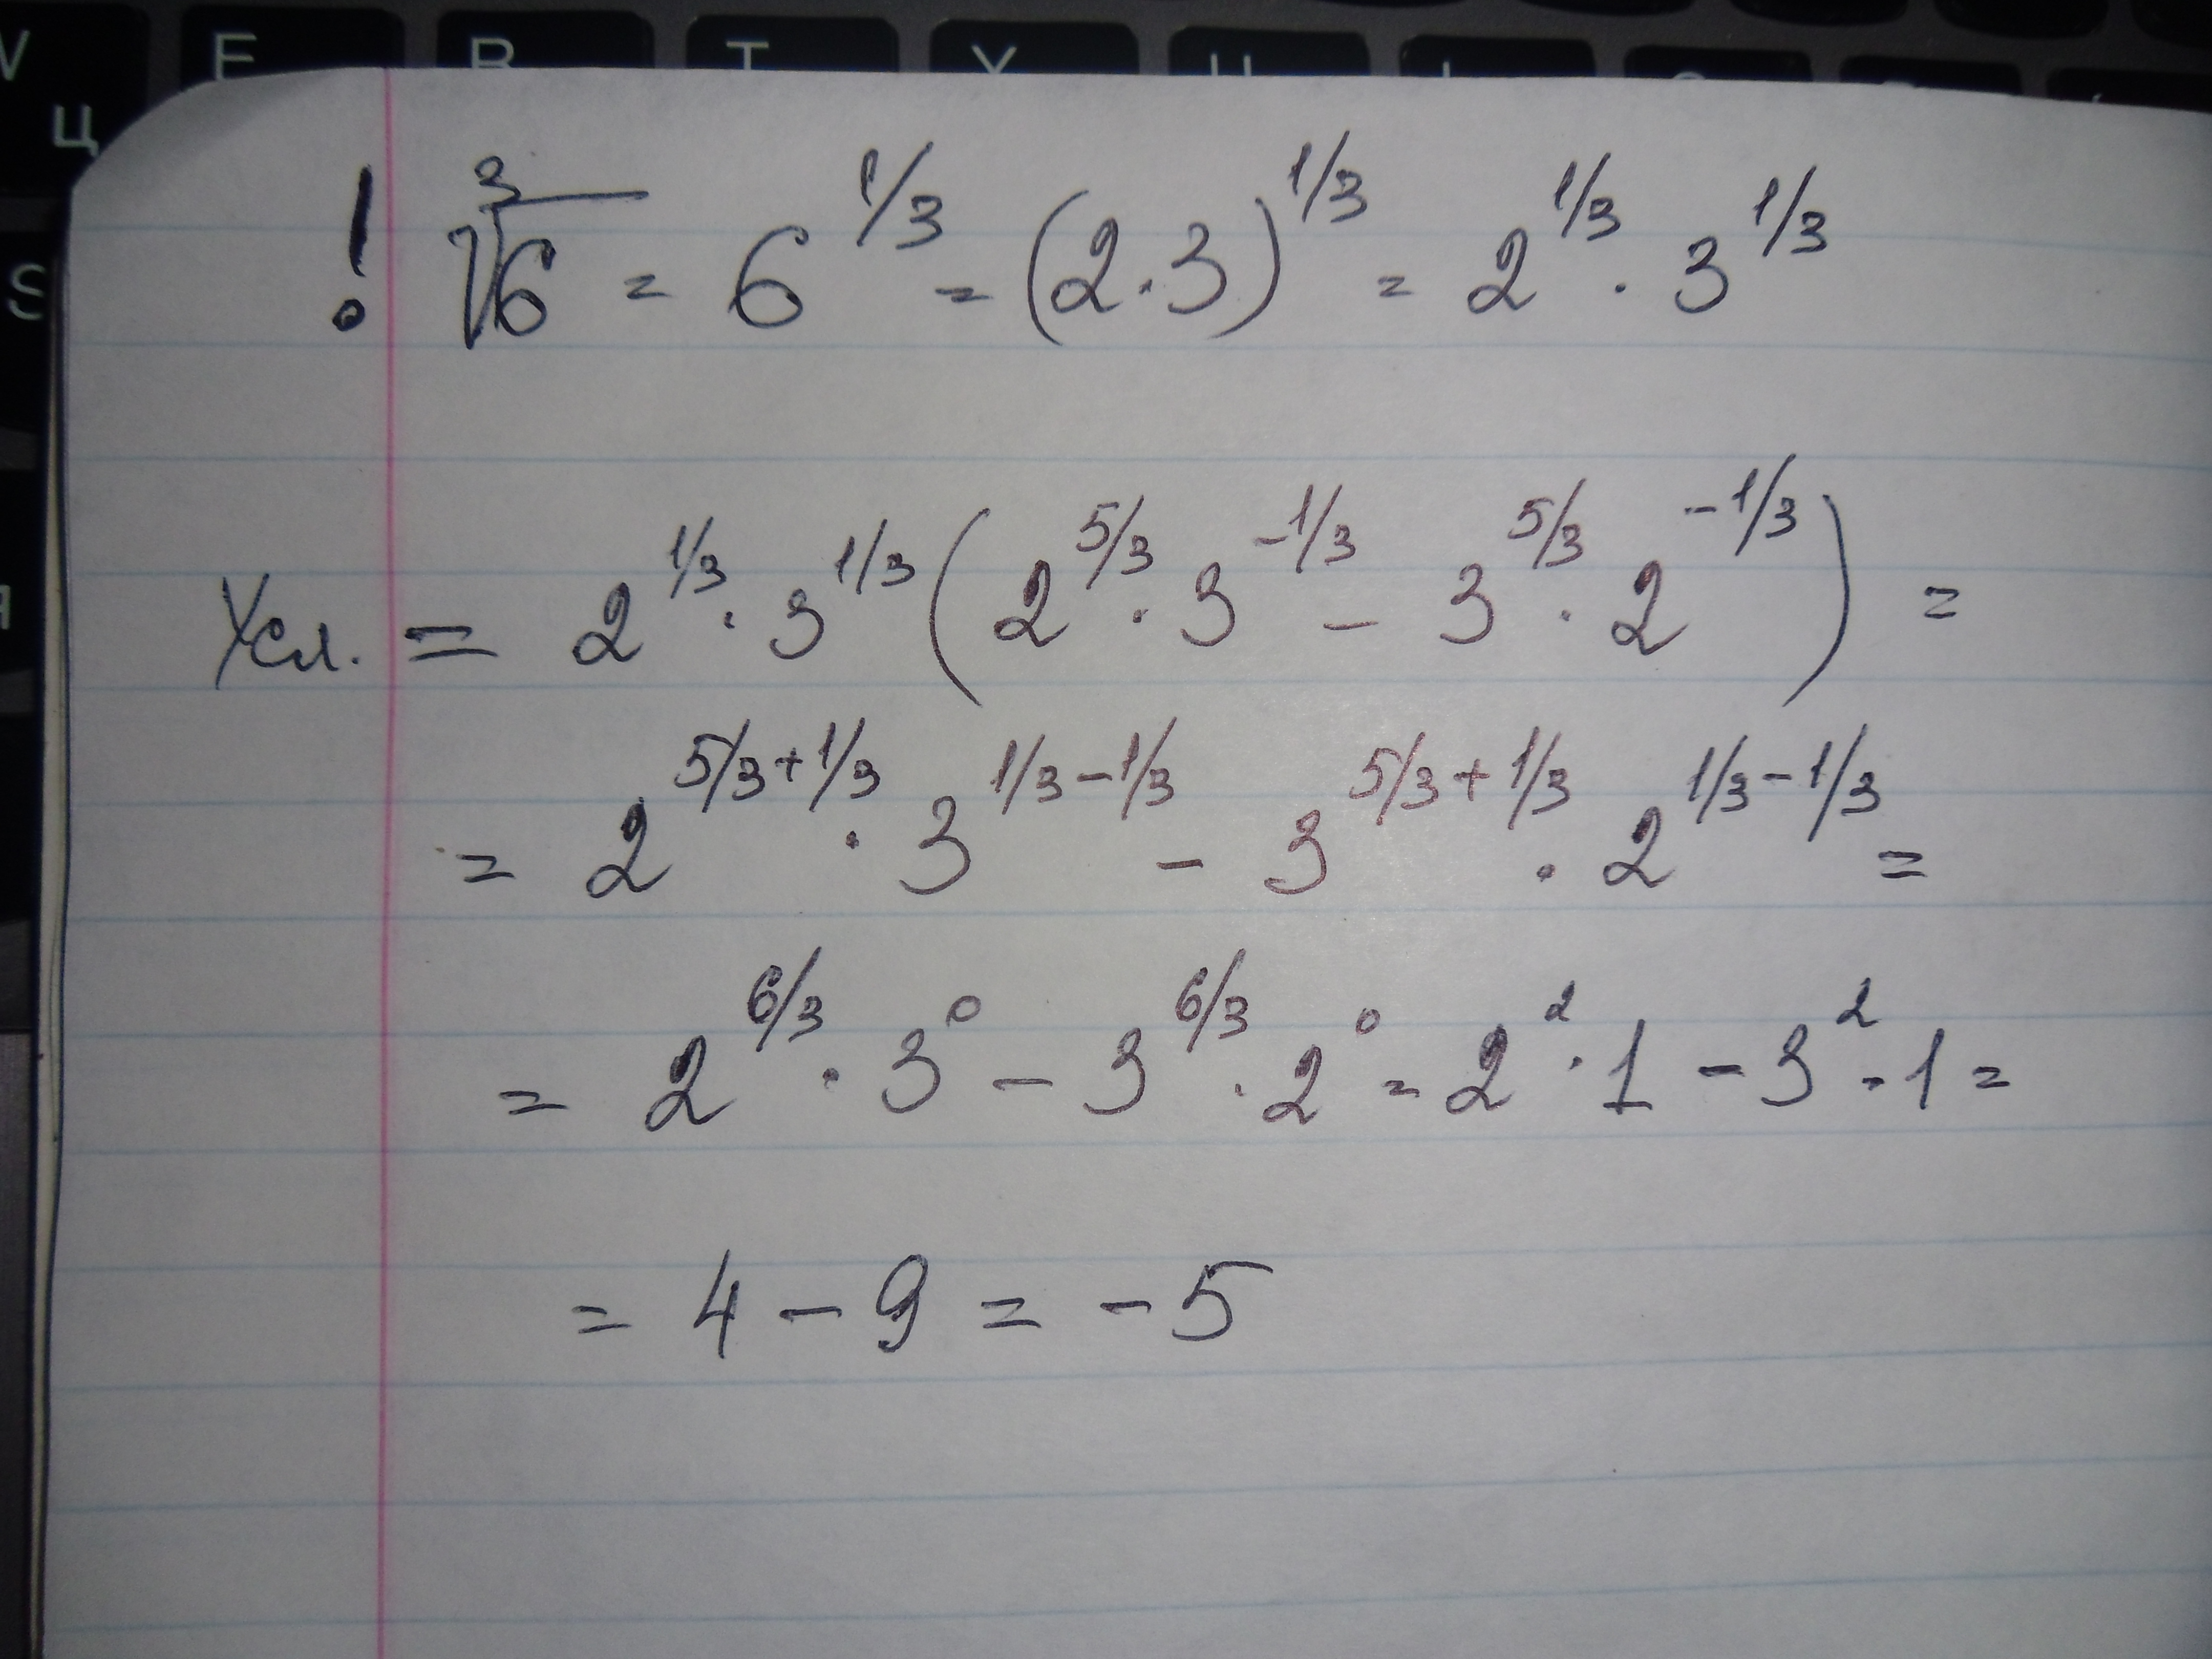 W E R T Y U
Ц
S
! ∛6 = 6^1/3 = (2·3)^1/3 = 2^1/3 · 3^1/3
Усл. = 2^1/3 · 3^1/3 (2^5/3 · 3^-1/3 - 3^5/3 · 2^-1/3) =
= 2^5/3+1/3 · 3^1/3-1/3 - 3^5/3+1/3 · 2^1/3-1/3 =
= 2^6/3 · 3^0 - 3^6/3 · 2^0 = 2^2 · 1 - 3^2 · 1 =
= 4 - 9 = -5